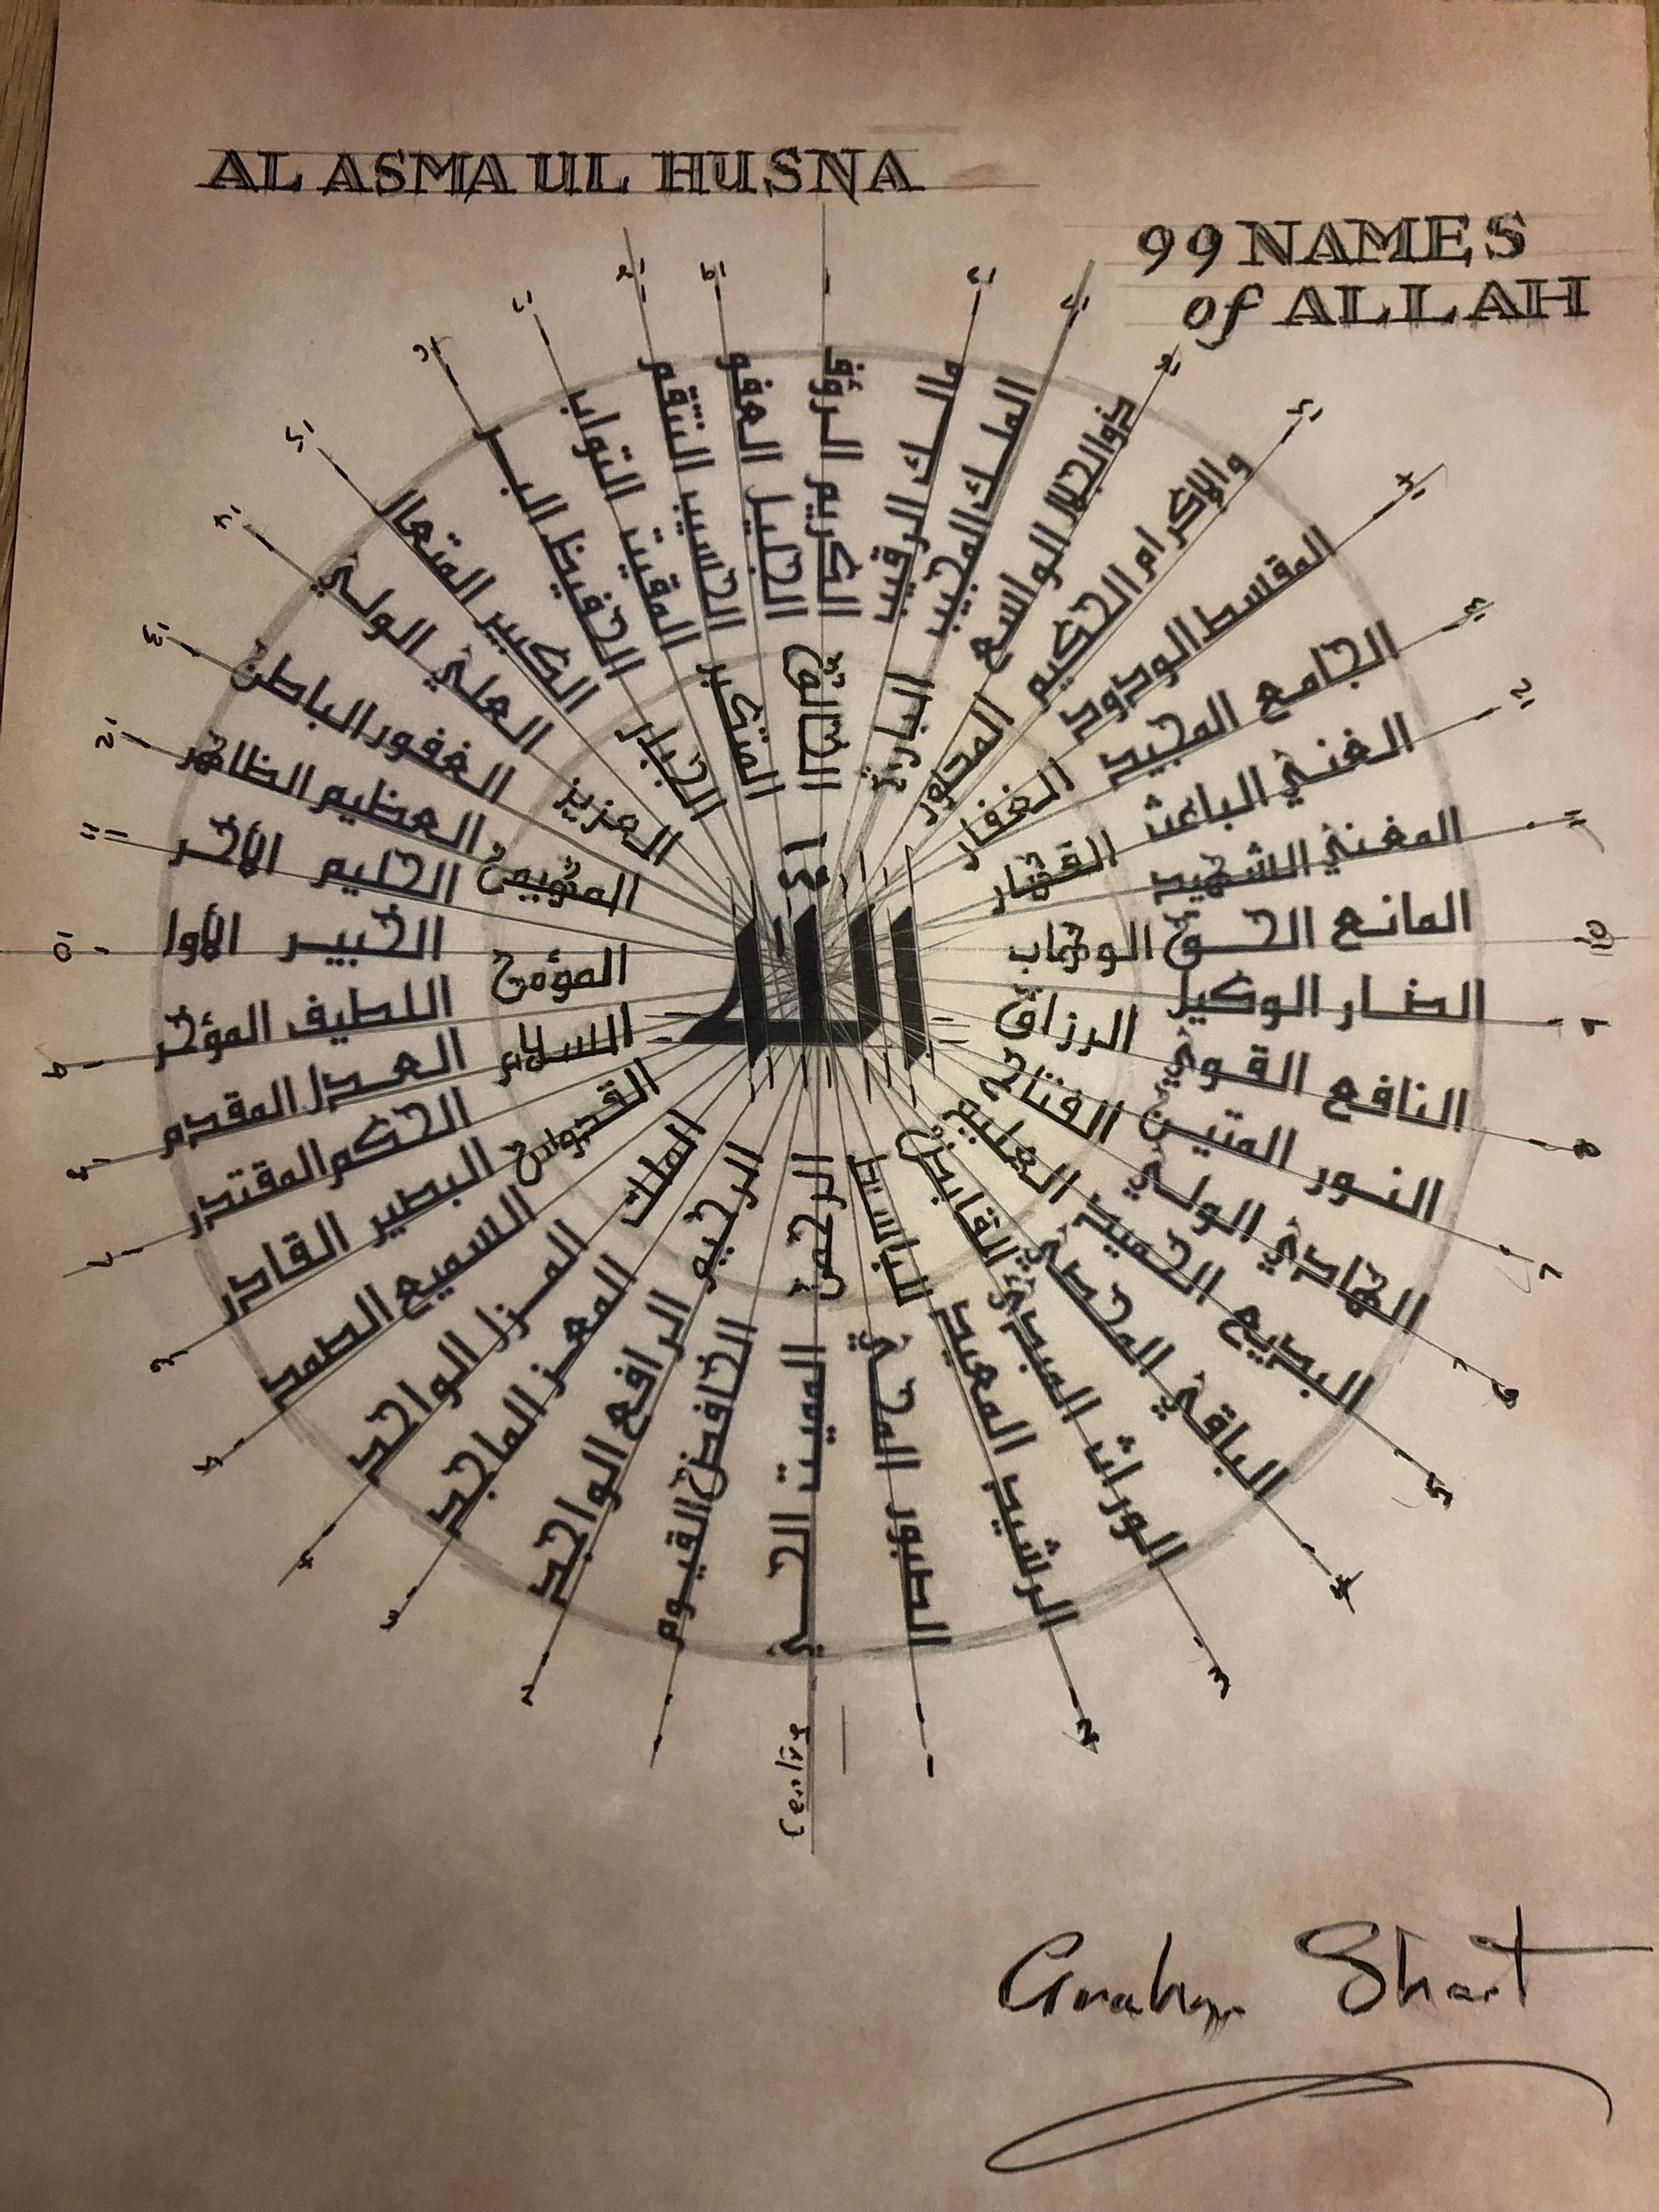 AL ASMA UL HUSNA
99 NAMES
of ALLAH
الله
الرحمن
الرحيم
الملك
القدوس
السلام
المؤمن
العزيز
الجبار
المتكبر
الخالق
البارئ
الغفار
القهار
الوهاب
الرزاق
الفتاح
العليم
القابض
الخافض القيوم
الرافع الواجد
المعز الماجد
الواحد
السميع الصمد
البصير القادر
الحكم المقتدر
العدل المقدم
اللطيف المؤخر
الخبير الأول
الحليم الأخر
العظيم الظاهر
الغفور الباطن
العلي الولي
الكبير المتعال
الحفيظ البر
المقيت التواب
الحسيب
الجليل العفو
الكريم الرؤف
الرقيب مالك
المجيب الملك
الواسع ذوالجلال
الحكيم والإكرام
الودود المقسط
المجيد الجامع
الباعث الغني
الشهيد المغني
الحق المانع
الوكيل الضار
القوي النافع
المتين النور
الولي الهادي
الحميد البديع
الباقي
المبدئ الوراث
المعيد الرشيد
المحي الصبور
المميت الحي
Centre